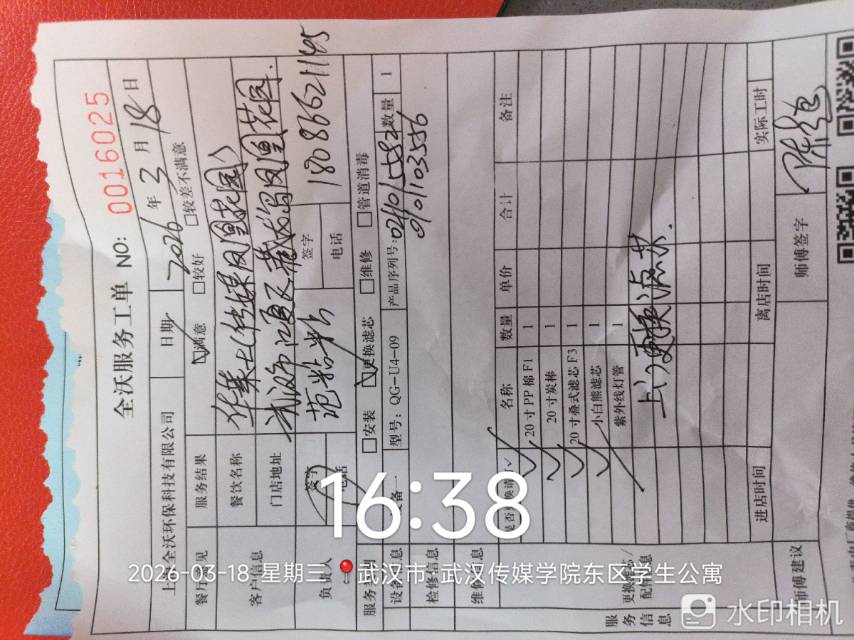 全沃服务工单 NO: 0016025
上海全沃环保科技有限公司 日期 2026年3月18日
服务结果 满意 较好 较差不满意
客户信息 餐饮名称 华莱士(传媒凤凰花园)
门店地址 武汉市江夏区藏龙岛凤凰花园.
负责人 签字 电话 范 签字 电话 18086621145
安装 更换滤芯 维修 管道消毒
型号: QG-U4-09 产品序列号: 数量 1
010103556
检修信息
名称 数量 单价 合计 备注
20寸PP棉F1 1
20寸炭棒 1
20寸叠式滤芯F3 1
小白熊滤芯 1
紫外线灯管 1
上门更换滤水.
进店时间 离店时间 实际工时
师傅建议 师傅签字 陈
16:38
2026-03-18 星期三 武汉市·武汉传媒学院东区学生公寓
水印相机